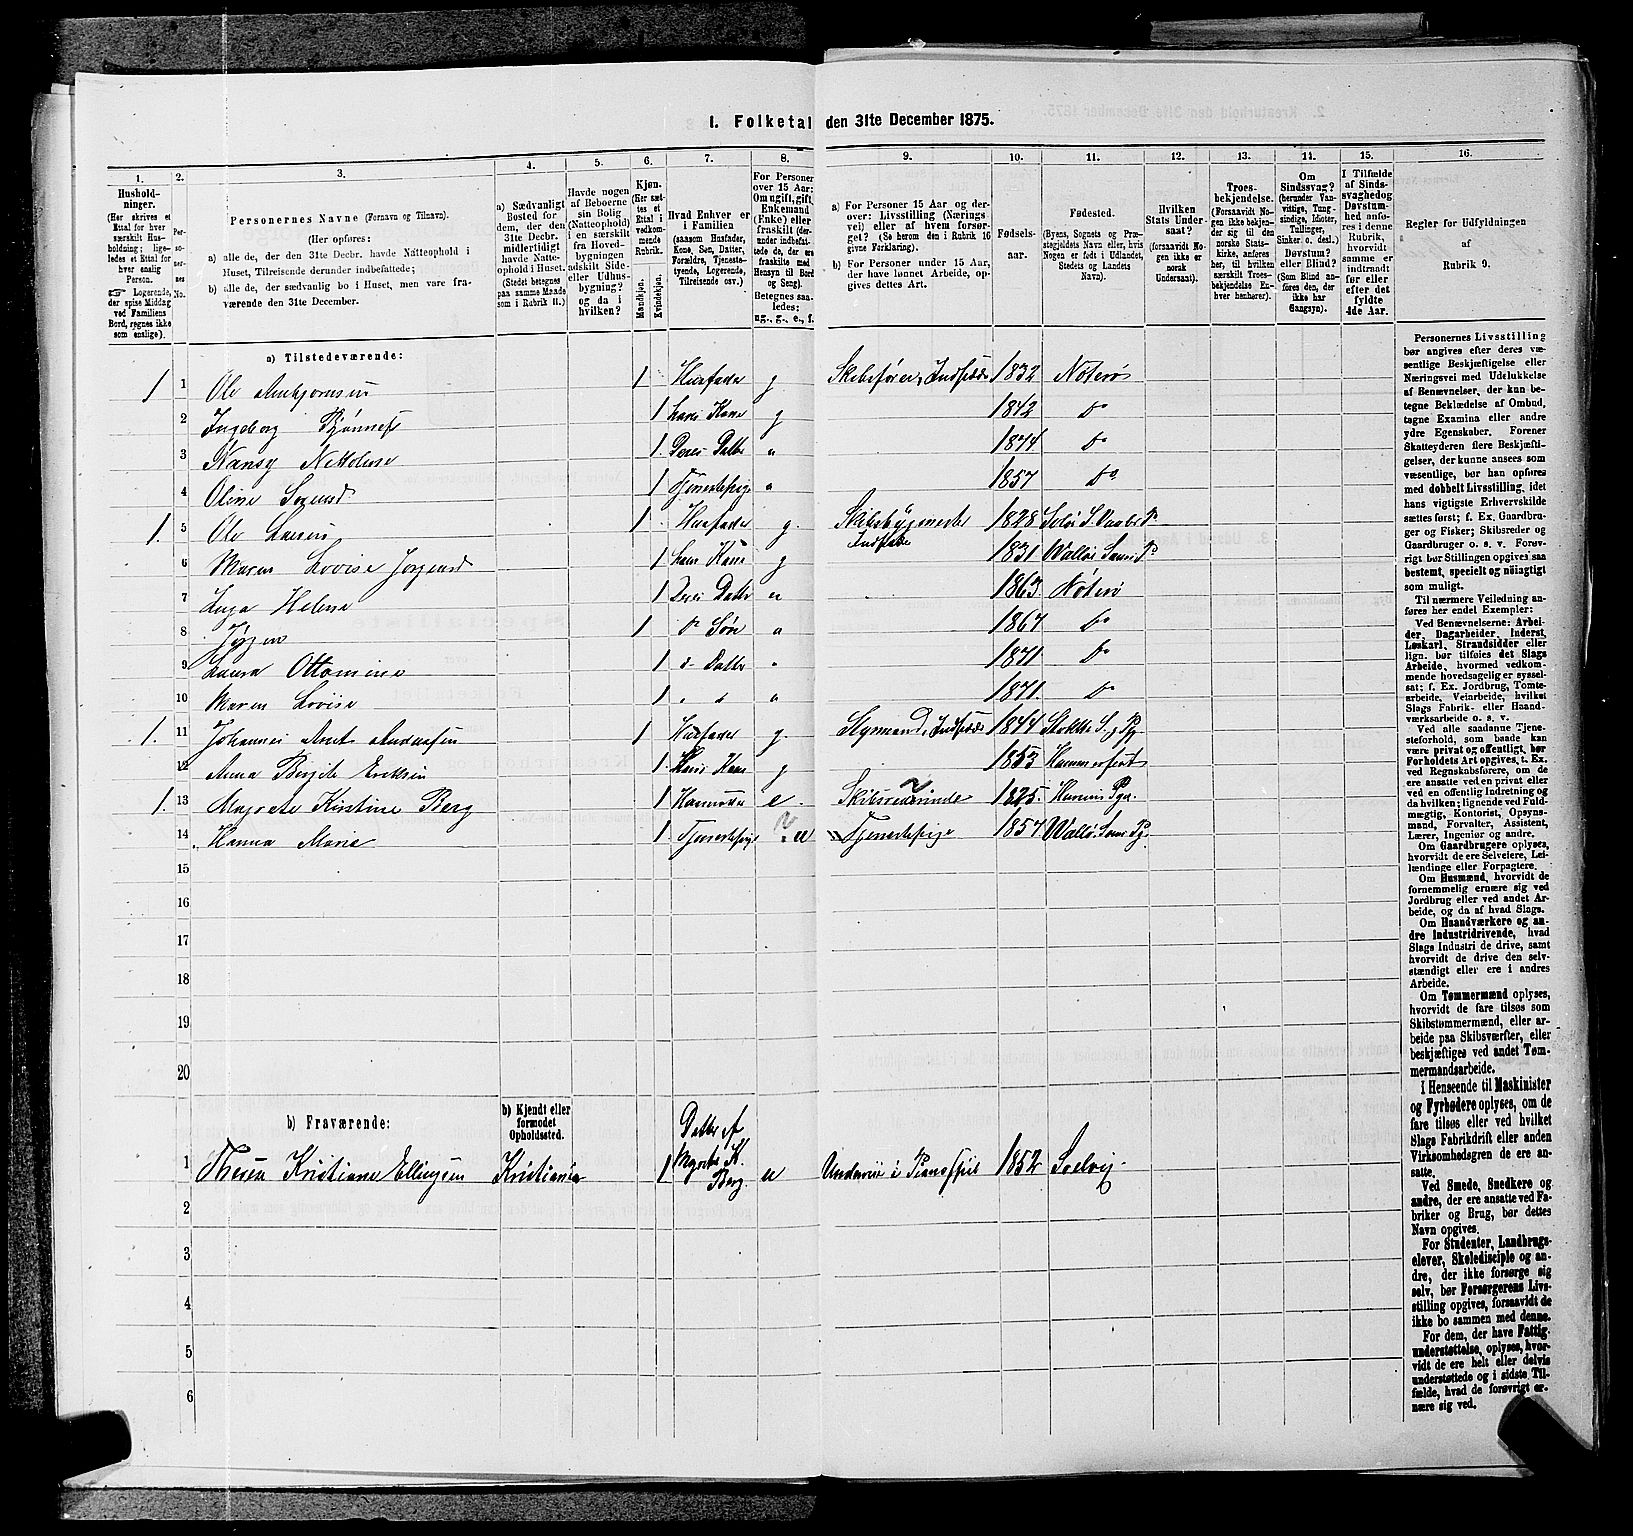 1. Folketal den 31te December 1875.
1.
2.
3.
4.
5.
6.
7.
8.
9.
10.
11.
12.
13.
14.
15.
16.
Hushold-
ninger.
(Her skrives et
Ettal for hver
særskilt Hus-
holdning; lige-
ledes et Ettal for
hver enslig
Person.
Logerende,
der spise Middag
ved Familiens
Bord, regnes ikke
som enslige).
Per-
so-
ner-
nes
No.
Personernes Navne (Fornavn og Tilnavn).
(Her opføres:
a) alle de, der den 31te Decbr. havde Natteophold i
Huset, Tilreisende derunder indbefattede;
b) alle de, der sædvanlig bo i Huset, men vare fra-
værende den 31te December.
a) Sædvanligt
Bosted for
dem, der den
31te Decbr.
midlertidigt
havde Natte-
ophold i Huset.
(Stedet betegnes
paa samme Maade
som i Rubrik 11.)
Havde nogen
af Beboerne
sin Bolig
(Natteophold)
i en særskilt
fra Hoved-
bygningen
adskilt Side-
eller Udhus-
bygning?
og da i
hvilken?
Kjøn.
(Her sæt-
tes et
Ettal i
vedkom-
mende
Rubrik.
Mandkjøn.
Kvindekjøn.
Hvad Enhver er
i Familien
(saasom Husfader,
Kone, Søn, Datter,
Forældre, Tjeneste-
tyende, Logerende,
Tilreisende osv.)
For Personer
over 15 Aar:
Om ugift, gift,
Enkemand
(Enke) eller
fraskilt (der-
under indbefat-
tede de, der ere
fraskilte med
Hensyn til Bord
og Seng).
Betegnes saa-
ledes;
ug., g., e., f.
a) For Personer 15 Aar og der-
over: Livsstilling (Nærings-
vei) eller af hvem forsør-
get? (Se herom den i Rubrik 16
givne Forklaring).
b) For Personer under 15 Aar,
der have lønnet Arbeide, op-
gives dettes Art.
Fødsels-
aar.
Fødested.
(Byens, Sognets og Præ-
stegjeldets Navn eller, hvis
Nogen er født i Udlandet,
Stedets og Landets
Navn).
Hvilken
Stats Under-
saat?
(forsaavidt No-
gen ikke er
norsk
Undersaat).
Troes-
bekjendelse.
(Forsaavidt No-
gen ikke bekjen-
der sig til den
norske Stats-
kirke, anføres
her, til hvilken
særskilt Troes-
bekjendelse En-
hver henhører).
Om
Sindssvag?
(herunder Van-
vittige, Tung-
sindige, Idioter,
Tullinger,
Sinker o. desl.)
Døvstum?
eller Blind?
(Som Blind an-
føres den, der
ikke har
Gangsyn).
I Tilfælde
af Sinds-
svaghed og
Døvstum-
hed anfø-
res i denne
Rubrik,
hvorvidt
samme er
indtraadt
før eller
efter det
fyldte
4de Aar.
Regler for Udfyldningen
af
Rubrik 9.
a) Tilstedeværende:
1 1 1 Husfader g Skibsfører, Indsidder 1832 Nøterø
2 Ingeborg 1 hans Kone g 1842 Do
3 Nansy 1 Deres Datter 1874 Do
4 Oline 1 Tjenestepige 1857 Do
1. 5 Ole Larsen 1 Husfader g. Skibsbygmester 1828
Indsidder
6 Maren Lovise Jørgensd 1 hans Kone g 1831 Walløi Sems P.
7 Inga Helene 1 Deres Datter 1863 Nøterø
8 Jørgen 1 Do Søn 1867 Do
9 Laura Ottomine 1 d. Datter 1871 Do
10 Maren Lovise 1 1871. Do
1. 11 Johannes 1 Husfader g. Styrmand, Indsidder 1844 Stokke S. & Pg
12 Anna Birgite Eriksen 1 Hans Kone g 1853 Hammerfest
1. 13 Magrete Kirstine Berg 1 e. Skibsrederinde 1825.
14 Hanna Marie 1 Tjenestepige u Tjenestepige 1857 Walløi Sems Pg.
15
16
17
18
19
20
b) Fraværende:
b) Kjendt eller
formodet
Opholdssted.
1 Kristiane Ellingsen Kristiania 1 Datter af
K.
Berg. u i Pianospil 1852 Soelvig
2
3
4
5
6
Personernes Livsstilling
bør angives efter deres væ-
sentlige Beskjæftigelse eller
Næringsvei med Udelukkelse
af Benævnelser, der kun be-
tegne Beklædelse af Ombud,
tagne Examina eller andre
ydre Egenskaber. Forener
Skatteyderen flere Beskjæfti-
gelser, der kunne ansees som
væsentlige, bør han opføres
med dobbelt Livsstilling, idet
hans vigtigste Erhvervskilde
sættes først; f. Ex. Gaardbru-
ger og Fisker; Skibsreder og
Gaardbruger o. s. v. Forøv-
rigt bør Stillingen opgives saa
bestemt, specielt og nøiagtigt
som muligt.
Til nærmere Veiledning an-
føres her endel Exempler:
Ved Benævnelserne: Arbei-
der, Dagarbeider, Inderst,
Løskarl, Strandsidder eller
lign. bør tilføies det Slags
Arbeide, hvormed vedkom-
mende hovedsagelig er syssel-
sat; f. Ex. Jordbrug, Tomte-
arbeide, Veiarbeide, hvilket
Slags Fabrik- eller Haand-
værksarbeide o. s. v.
Ved alle saadanne Tjene-
steforhold, som baade kan
være privat og offentligt, bør
Forholdets Art opgives, t. Ex.
ved Regnskabsførere, om de
ere ansatte ved en privat eller
ved en offentlig Indretning og
da hvilken; lignende ved Fuld-
mægtig, Kontorist, Opsyns-
mand, Forvalter, Assistent,
Lærer, Ingeniør og andre.
Om Gaardbrugere oplyses,
hvorvidt de ere Selveiere, Lei-
lændinge eller Forpagtere.
Om Husmænd, hvorvidt de
fornemmelig ernære sig ved
Jordbrug eller ved andet Ar-
beide, og da af hvad Slags.
Om Haandværkere og an-
dre Industridrivende, hvad
Slags Industri de drive, samt
hvorvidt de drive den selv-
stændigt eller ere i andres
Arbeide.
Om Tømmermænd oplyses,
hvorvidt de fare tilsøs som
Skibstømmermænd, eller ar-
beide paa Skibsværfter, eller
beskjæftiges ved andet Tøm-
mermandsarbeide.
I Henseende til Maskinister
og Fyrbødere oplyses, om de
fare tilsøs eller ved hvilket
Slags Fabrikdrift eller anden
Virksomhedsgren de ere an-
satte.
Ved Smede, Snedkere og
andre, der ere ansatte ved Fa-
briker og Brug, bør dettes
Navn opgives.
For Studenter, Landbrugs-
elever, Skoledisciple og an-
dre, der ikke forsørge sig
selv, bør Forsørgerens Livs-
stilling opgives, forsaavidt de
ikke bo sammen med denne.
For dem, der have Fattig-
understøttelse, oplyses, hvor-
vidt de ere helt eller delvis
understøttede og i sidste Til-
fælde, hvad de forøvrigt er-
nære sig ved.